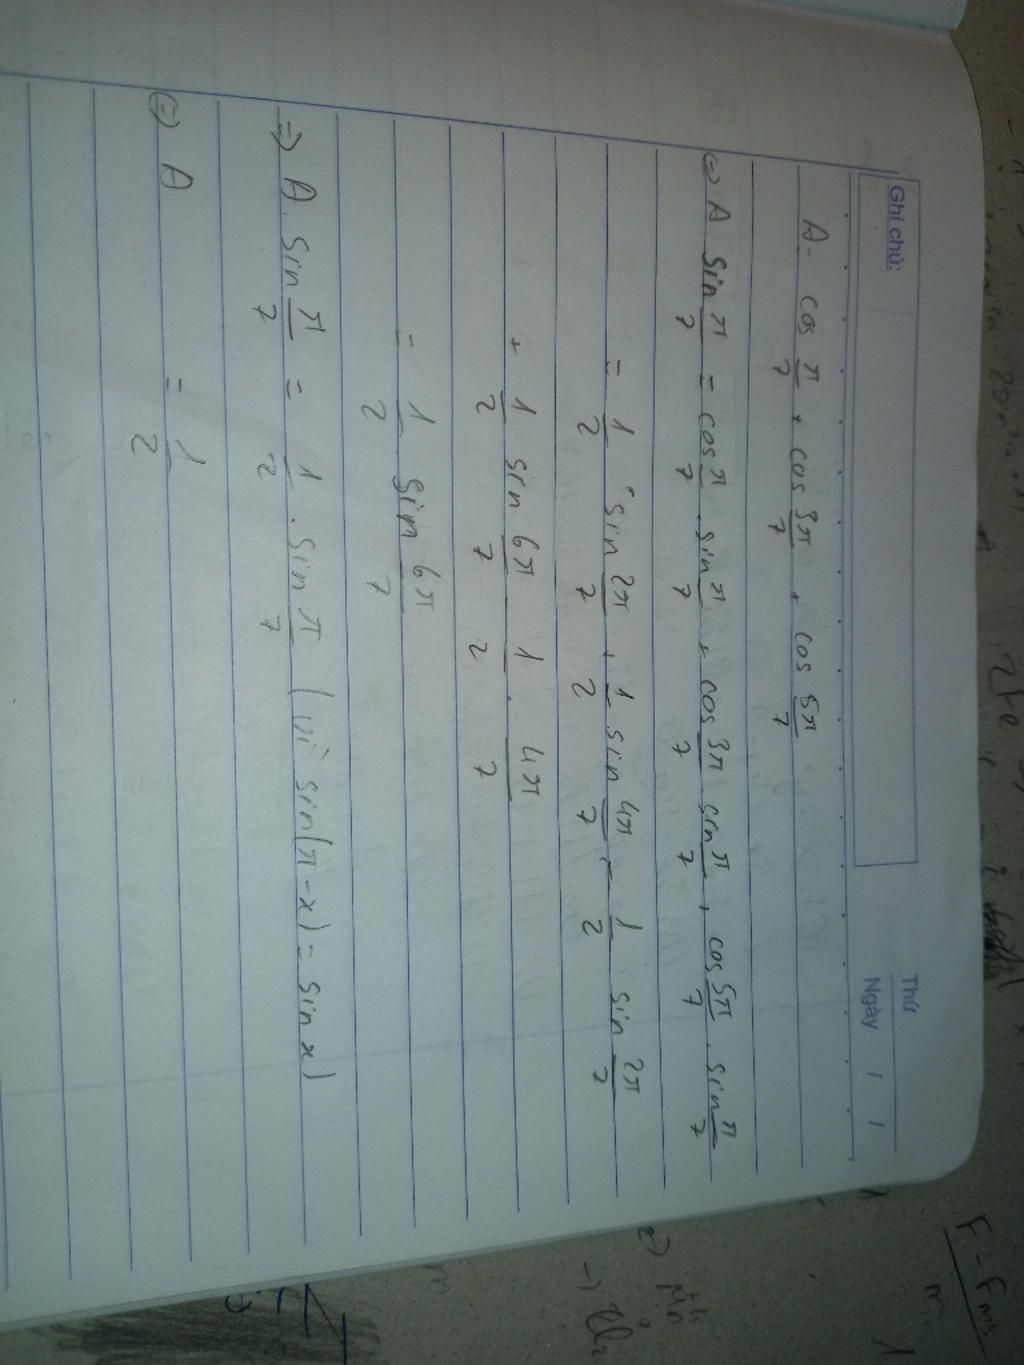 Ghi chú:
Thứ
Ngày / /
A = cos π/7 + cos 3π/7 + cos 5π/7
(=) A sin π/7 = cos π/7 . sin π/7 + cos 3π/7 sin π/7 + cos 5π/7 . sin π/7
= 1/2 . sin 2π/7 + 1/2 sin 4π/7 - 1/2 sin 2π/7
+ 1/2 sin 6π/7 - 1/2 . 4π/7
= 1/2 . sin 6π/7
=> A . sin π/7 = 1/2 . sin π/7 (vì sin(π - x) = sin x)
(=) A = 1/2
F - Fms
m